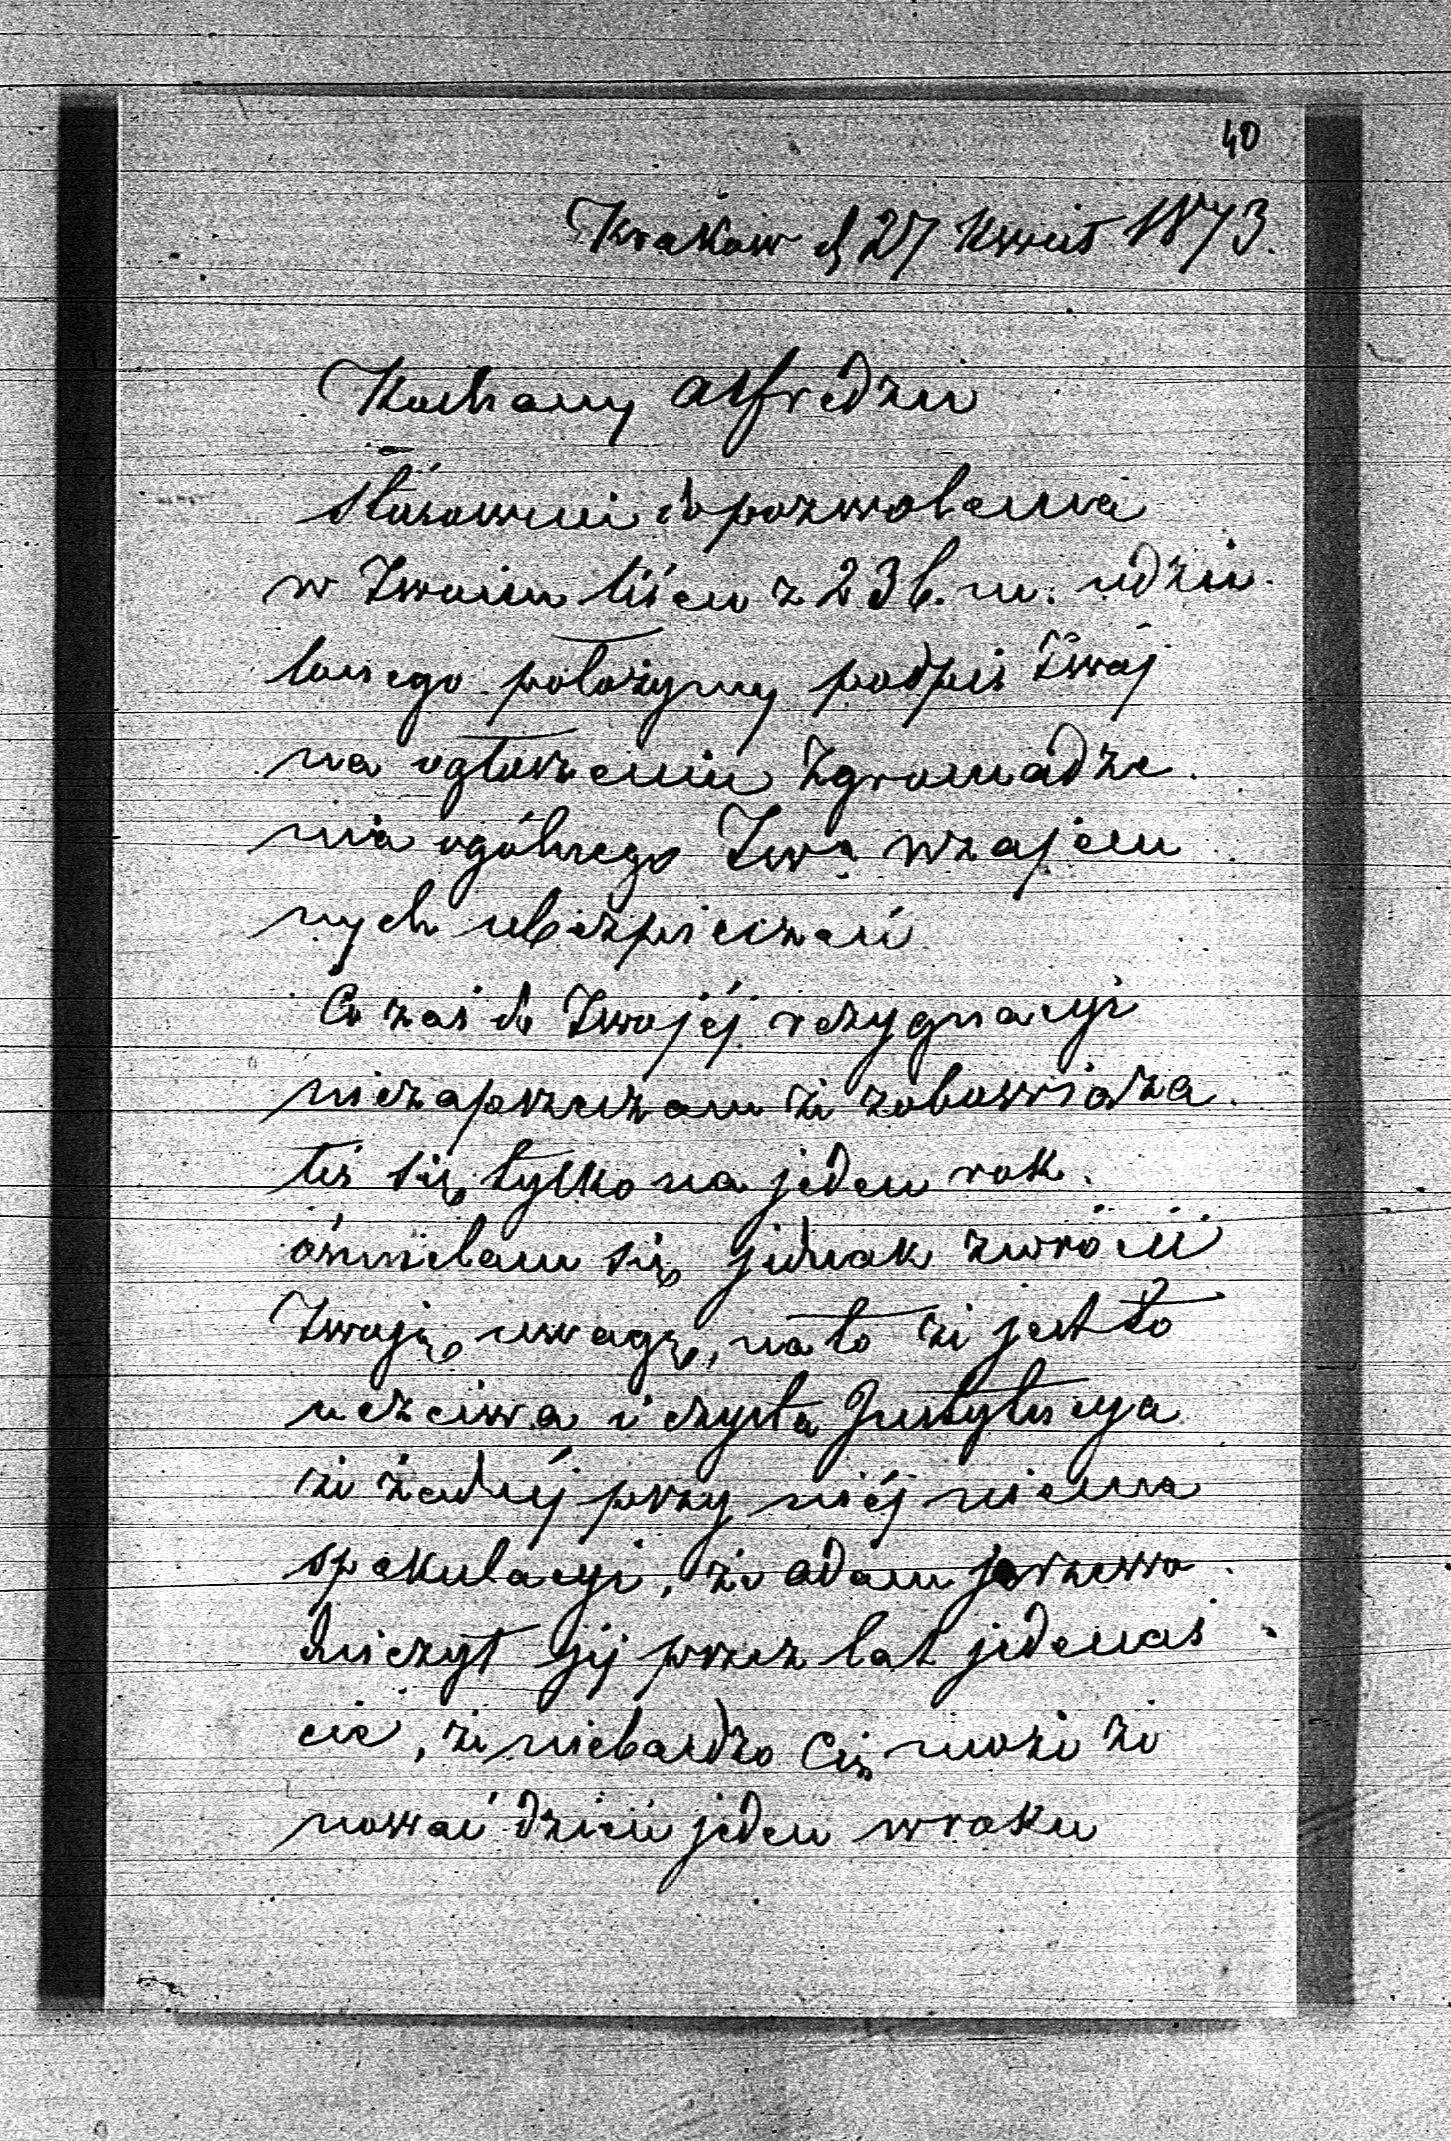 40
Kraków d, 27 Kwiet 1873.
Kochany Alfredzie
Stósownie do pozwolenia
w Twoim liście z 23 b. m. udzie
lonego położymy podpis Twój
na ogłoszeniu Zgromadze
nia ogólnego Twa wzajem
nych ubezpieczeń
Co zaś do Twojéj rezygnacyi
niezaprzeczam że zobowiąza
łeś się tylko na jeden rok.
ośmielam się jednak zwrócić
Twoję uwagę, na to że jest to
uczciwa i czysta Instytucya
że żadnéj przy niéj niema
spekulacyi, że Adam przewo
dniczył jéj przez lat jedenaś
cie, że niebardzo Cię może że
nować dzień jeden w roku